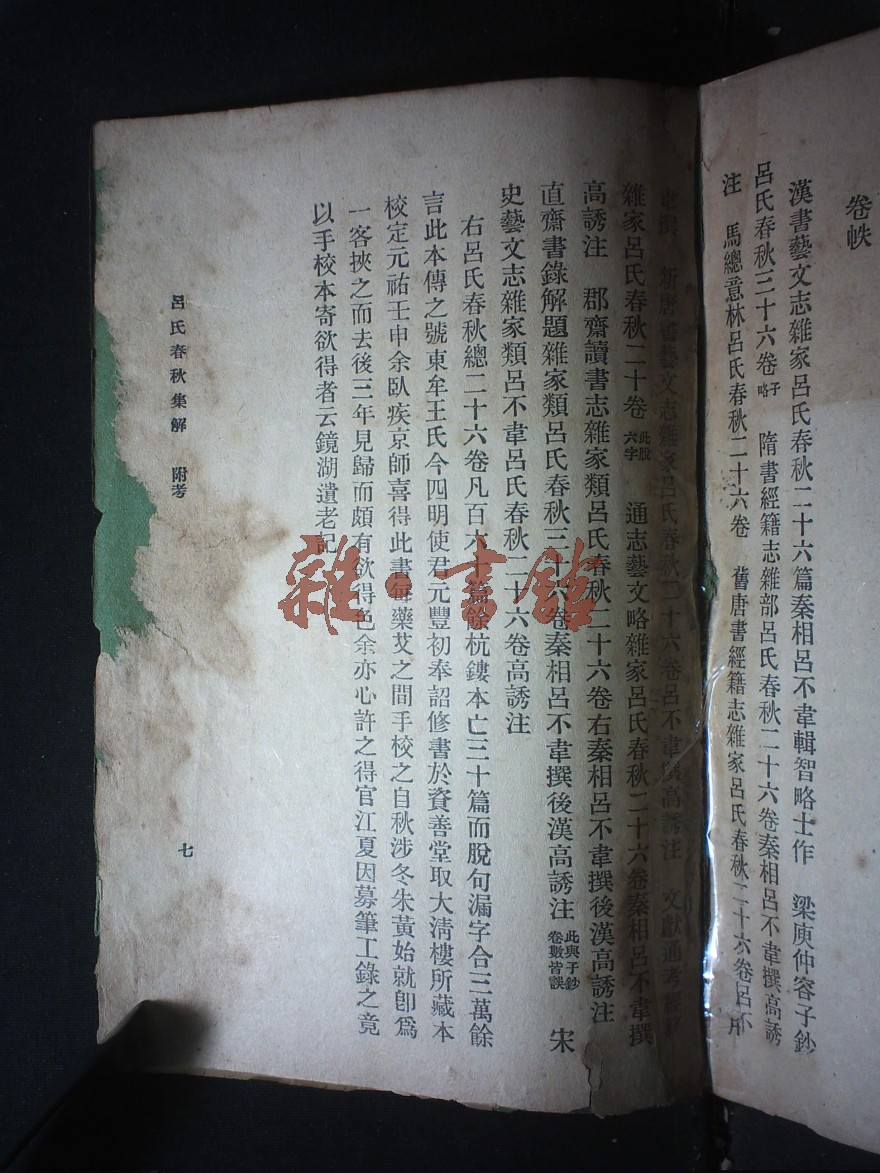 卷帙
漢書藝文志雜家呂氏春秋二十六篇秦相呂不韋輯智略士作　梁庾仲容子鈔
呂氏春秋三十六卷子略　隋書經籍志雜部呂氏春秋二十六卷秦相呂不韋撰高誘
注　馬總意林呂氏春秋二十六卷　舊唐書經籍志雜家呂氏春秋二十六卷呂不
韋撰　新唐書藝文志雜家呂氏春秋二十六卷呂不韋撰高誘注　文獻通考經籍
雜家呂氏春秋二十卷此脫六字　通志藝文略雜家呂氏春秋二十六卷秦相呂不韋撰
高誘注　郡齋讀書志雜家類呂氏春秋二十六卷右秦相呂不韋撰後漢高誘注
直齋書錄解題雜家類呂氏春秋三十六卷秦相呂不韋撰後漢高誘注此與子鈔卷數皆誤　宋
史藝文志雜家類呂不韋呂氏春秋二十六卷高誘注
右呂氏春秋總二十六卷凡百六十篇餘杭鏤本亡三十篇而脫句漏字合三萬餘
言此本傳之號東牟王氏今四明使君元豐初奉詔修書於資善堂取大清樓所藏本
校定元祐壬申余臥疾京師喜得此書每藥艾之間手校之自秋涉冬朱黃始就卽爲
一客挾之而去後三年見歸而頗有欲得色余亦心許之得官江夏因募筆工錄之竟
以手校本寄欲得者云鏡湖遺老記
呂氏春秋集解　附考
七
雜·書館